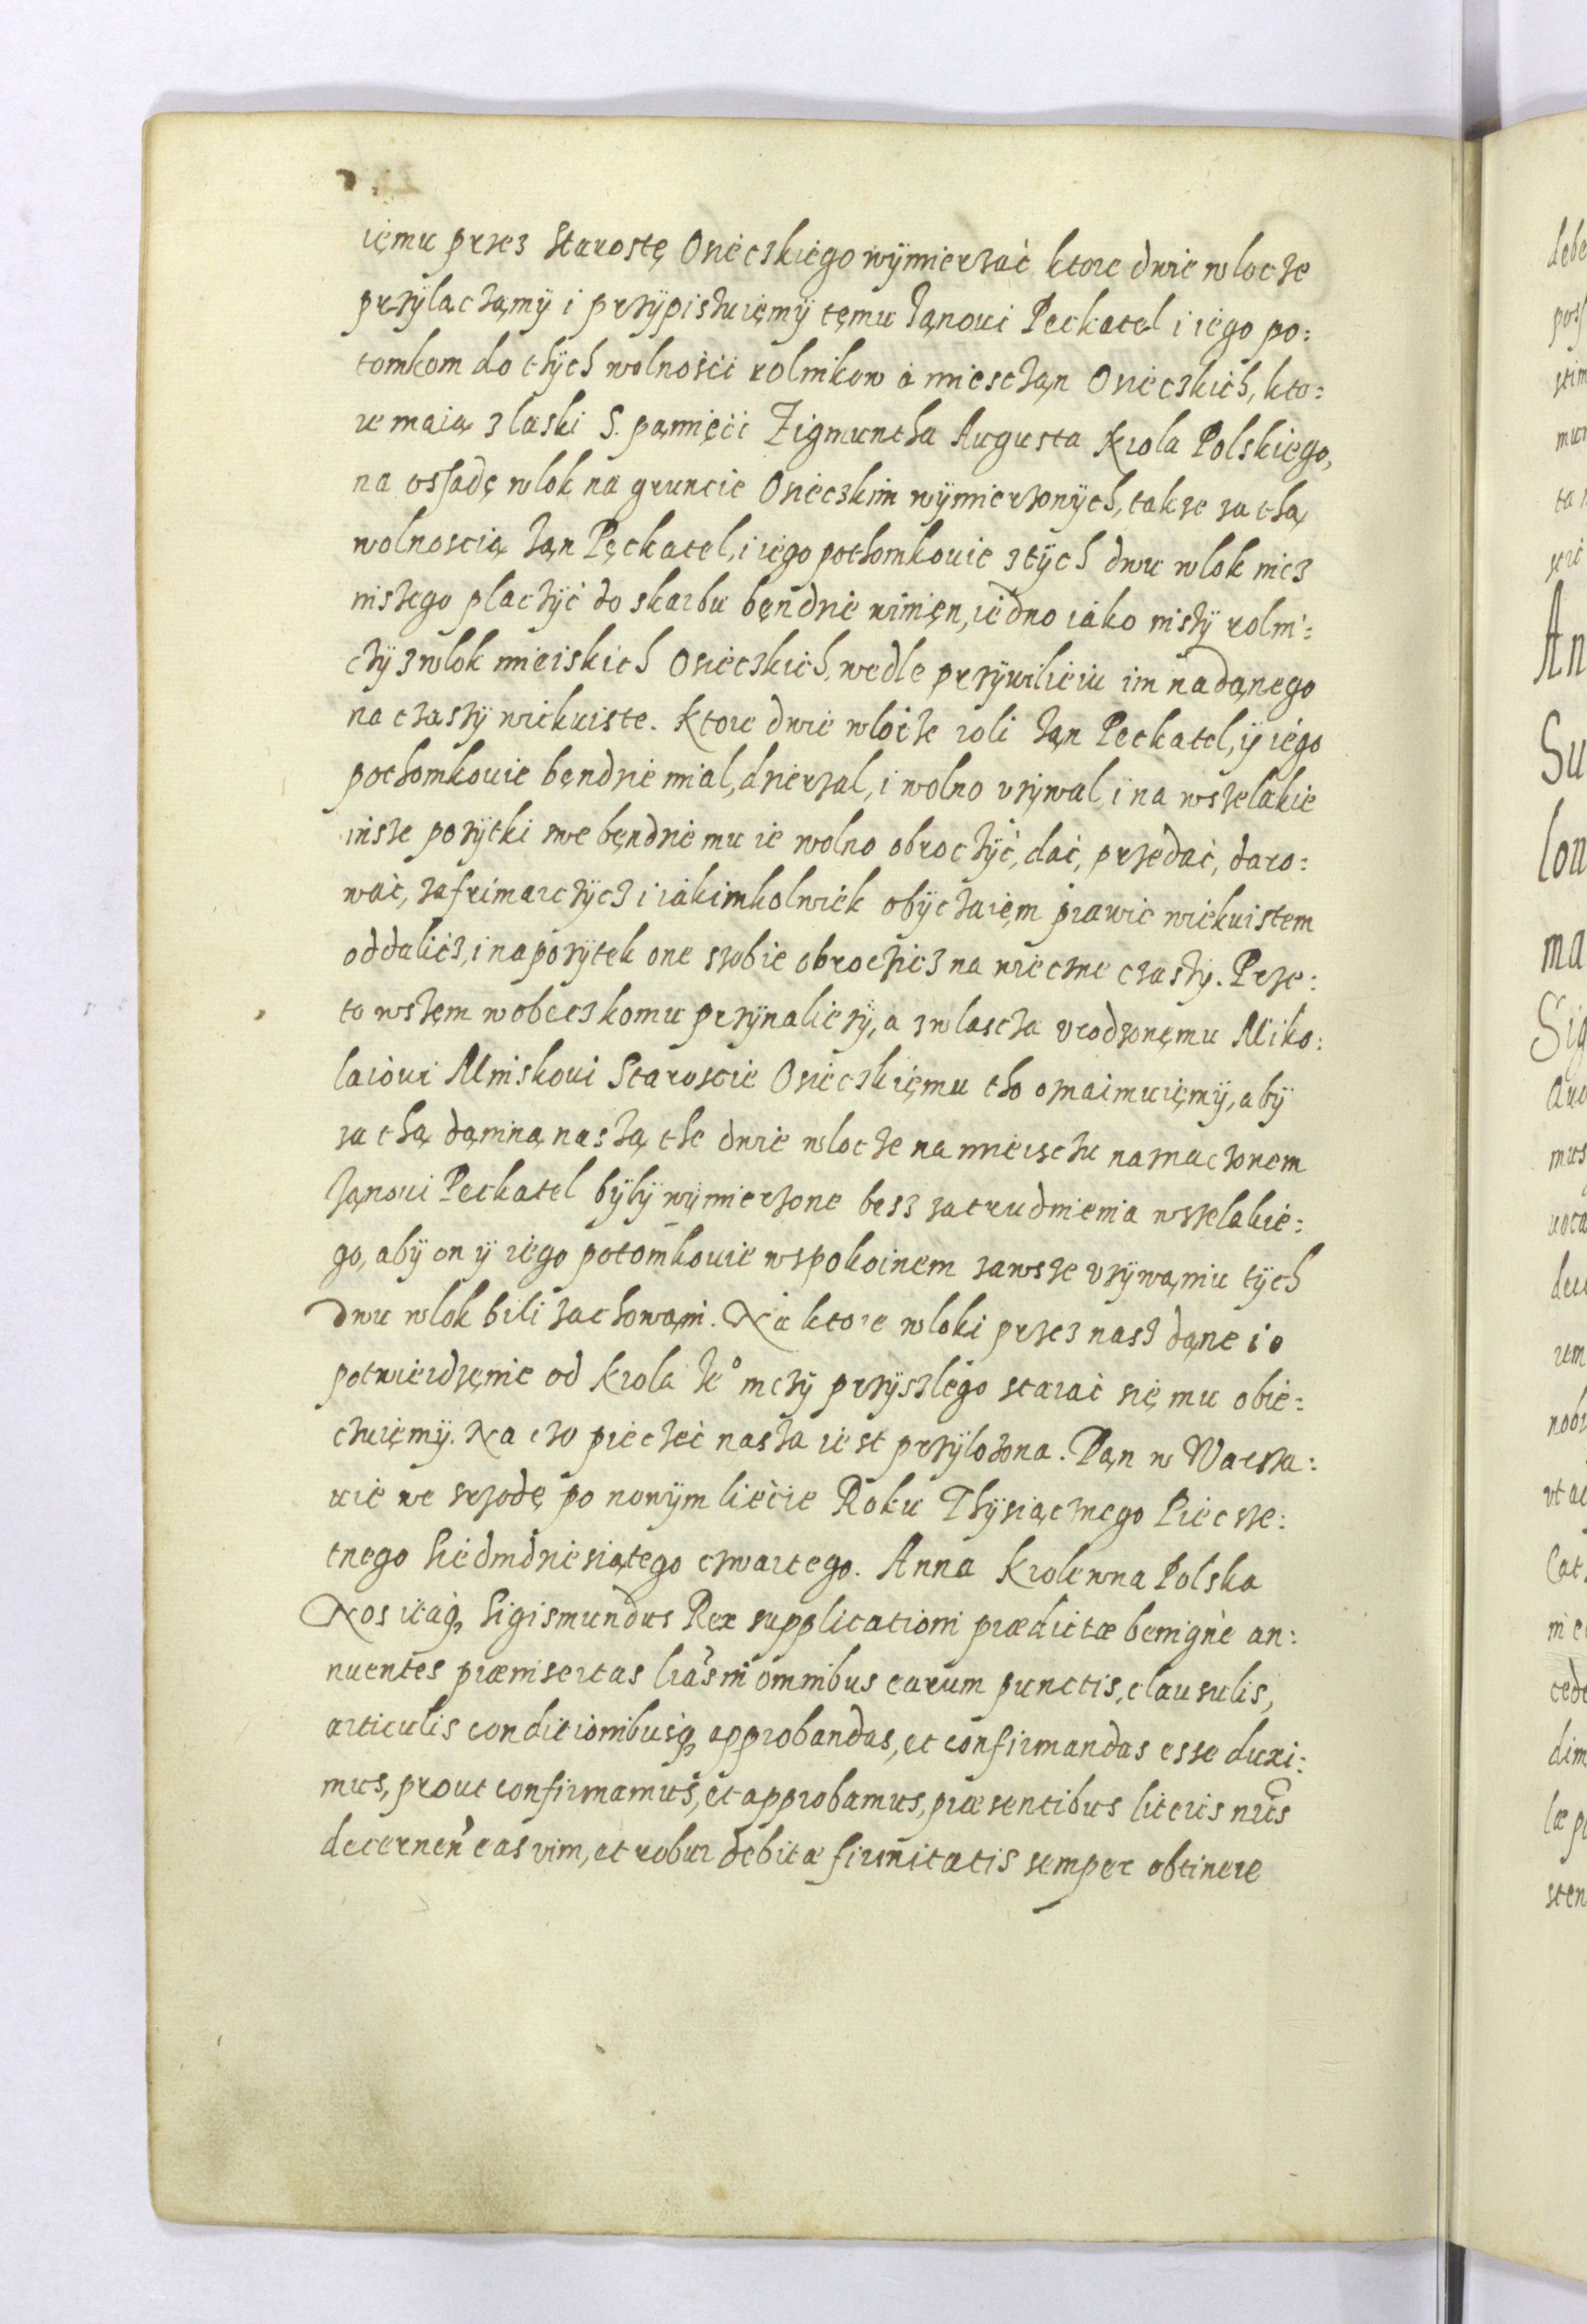 iemu przez Starostę Osieczkiego wÿmierzać ktore dwie wlocze
przÿlaczamÿ i przÿpisuiemÿ temu Janowi Peckatel i iego po:
tomkom do thÿch wolnosci rolnikow a miesczan Osieczkich, kto:
re maia z laski S. pamięci Zigmuntha Augusta Krola Polskiego,
na ossadę wlok na gruncie Osieczkim wÿmierzonÿch, takze za tha
wolnoscia Jan Peckatel, i iego pothomkouie z tÿch dwu wlok nicz
inszego placzÿć do skarbu bendzie winien, iedno iako inszÿ rolni:
czÿ z wlok mieiskich Osieczkich, wedle przÿwilieiu im nadanego
na czaszÿ wiekuiste. Ktore dwie wlocze roli Jan Peckatel, ÿ iego
pothomkouie bendzie mial, dzierzal, i wolno vzÿwal i na wszelakie
insze pozÿtki swe bendzie mu ie wolno obroczÿć, dać, przedać, daro:
wać, zafrimarczÿcz i iakimkolwiek obÿczaiem prawie wiekuistem
oddalicz, i na pozÿtek one szobie obroczicz na wieczne czaszÿ. Prze:
to wszem wobecz komu przÿnaliezÿ, a zwlascza vrodzonemu Miko:
laiowi Mniskoui Staroscie Osieczkiemu tho oznaimuiemÿ, abÿ
za tha danina nasza the dwie wlocze na mieisczu naznaczonem
Janoui Peckatel bÿlÿ wÿmierzone besz zatrudnienia wszelakie:
go, abÿ on ÿ iego potomkouie w spokoinem zawsze vzÿwaniu tÿch
dwu wlok bili zachowani. Na ktore wloki przez nasz dane i o
potwierdzenie od Krola Je° mczÿ przÿszlego starać się mu obie:
czuiemÿ. Na czo pieczeć nasza iest przÿlozona. Dan w Warsza:
wie we srzodę po nowÿm liecie Roku Thÿsiącznego Piecsze:
tnego Siedmdziesiątego czwartego. Anna Krolewna Polska
Nos itaq. Sigismundus Rex supplicationi prædictæ benignè an:
nuentes præinsertas lras in omnibus earum punctis, clausulis,
articulis conditionibusq. approbandas, et confirmandas esse duxi:
mus, prout confirmamus, et approbamus, præsentibus literis nris
decernen eas vim, et robur debitæ firmitatis semper obtinere